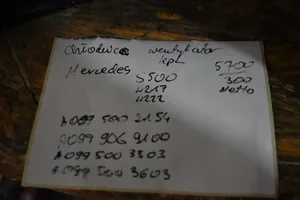 Chłodnica wentylator
kpl
Mercedes S500
W217
W222
5700
300
Netto
A099 500 2154
A099 906 9100
A099 500 3303
A099 500 3603